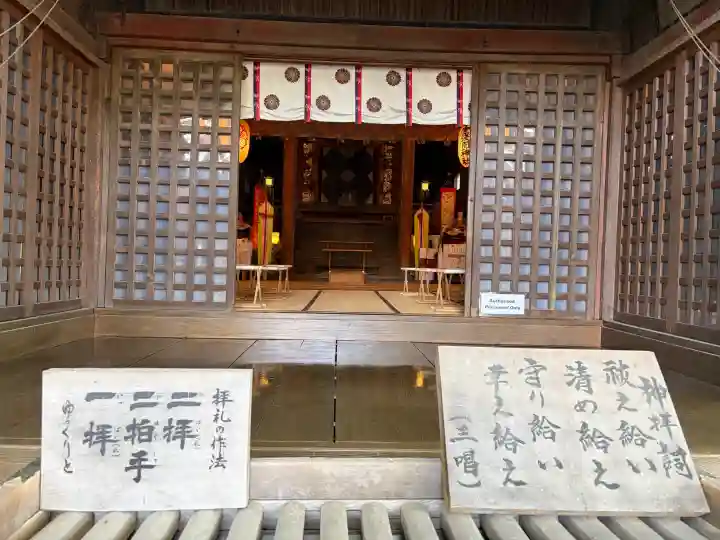 Authorized
Personnel Only
拝礼の作法
二拝
にはい
二拍手
一拝
いっぱい
ゆっくりと
神拝詞
祓え給い
清め給え
守り給い
幸え給え
（三唱）